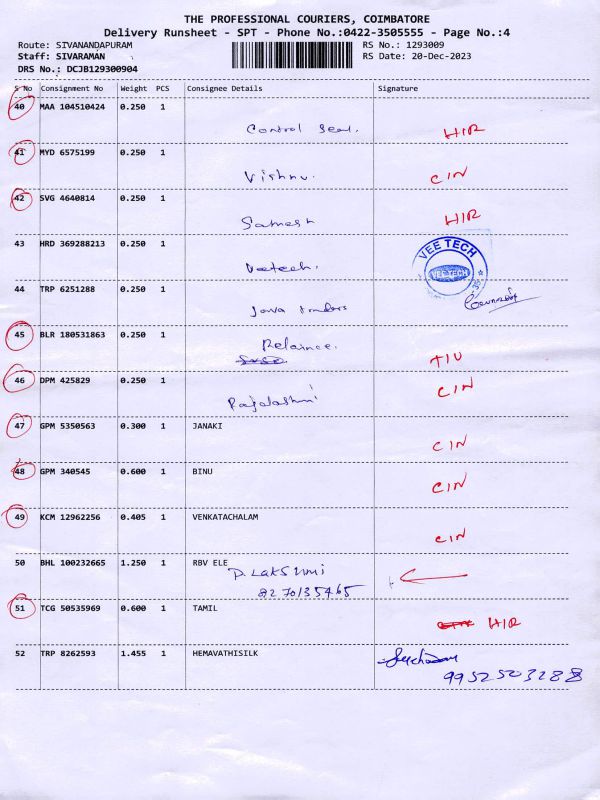 THE PROFESSIONAL COURIERS, COIMBATORE
Delivery Runsheet - SPT - Phone No.:0422-3505555 - Page No.:4
Route: SIVANANDAPURAM RS No.: 1293009
Staff: SIVARAMAN RS Date: 20-Dec-2023
DRS No.: DCJB129300904
S No Consignment No Weight PCS Consignee Details Signature
40 MAA 104510424 0.250 1
Control Seal. HIR
41 MYD 6575199 0.250 1
Vishnu. CIN
42 SVG 4640814 0.250 1
HIR
43 HRD 369288213 0.250 1
Veetech. VEE TECH VEE TECH
44 TRP 6251288 0.250 1
Jawa traders
45 BLR 180531863 0.250 1
Relaince.
46 DPM 425829 0.250 1 CIN
47 GPM 5350563 0.300 1 JANAKI
CIN
48 GPM 340545 0.600 1 BINU
CIN
49 KCM 12962256 0.405 1 VENKATACHALAM
CIN
50 BHL 100232665 1.250 1 RBV ELE
P. LAKSHMI
8270135465
51 TCG 50535969 0.600 1 TAMIL
HIR
52 TRP 8262593 1.455 1 HEMAVATHISILK
9952503288